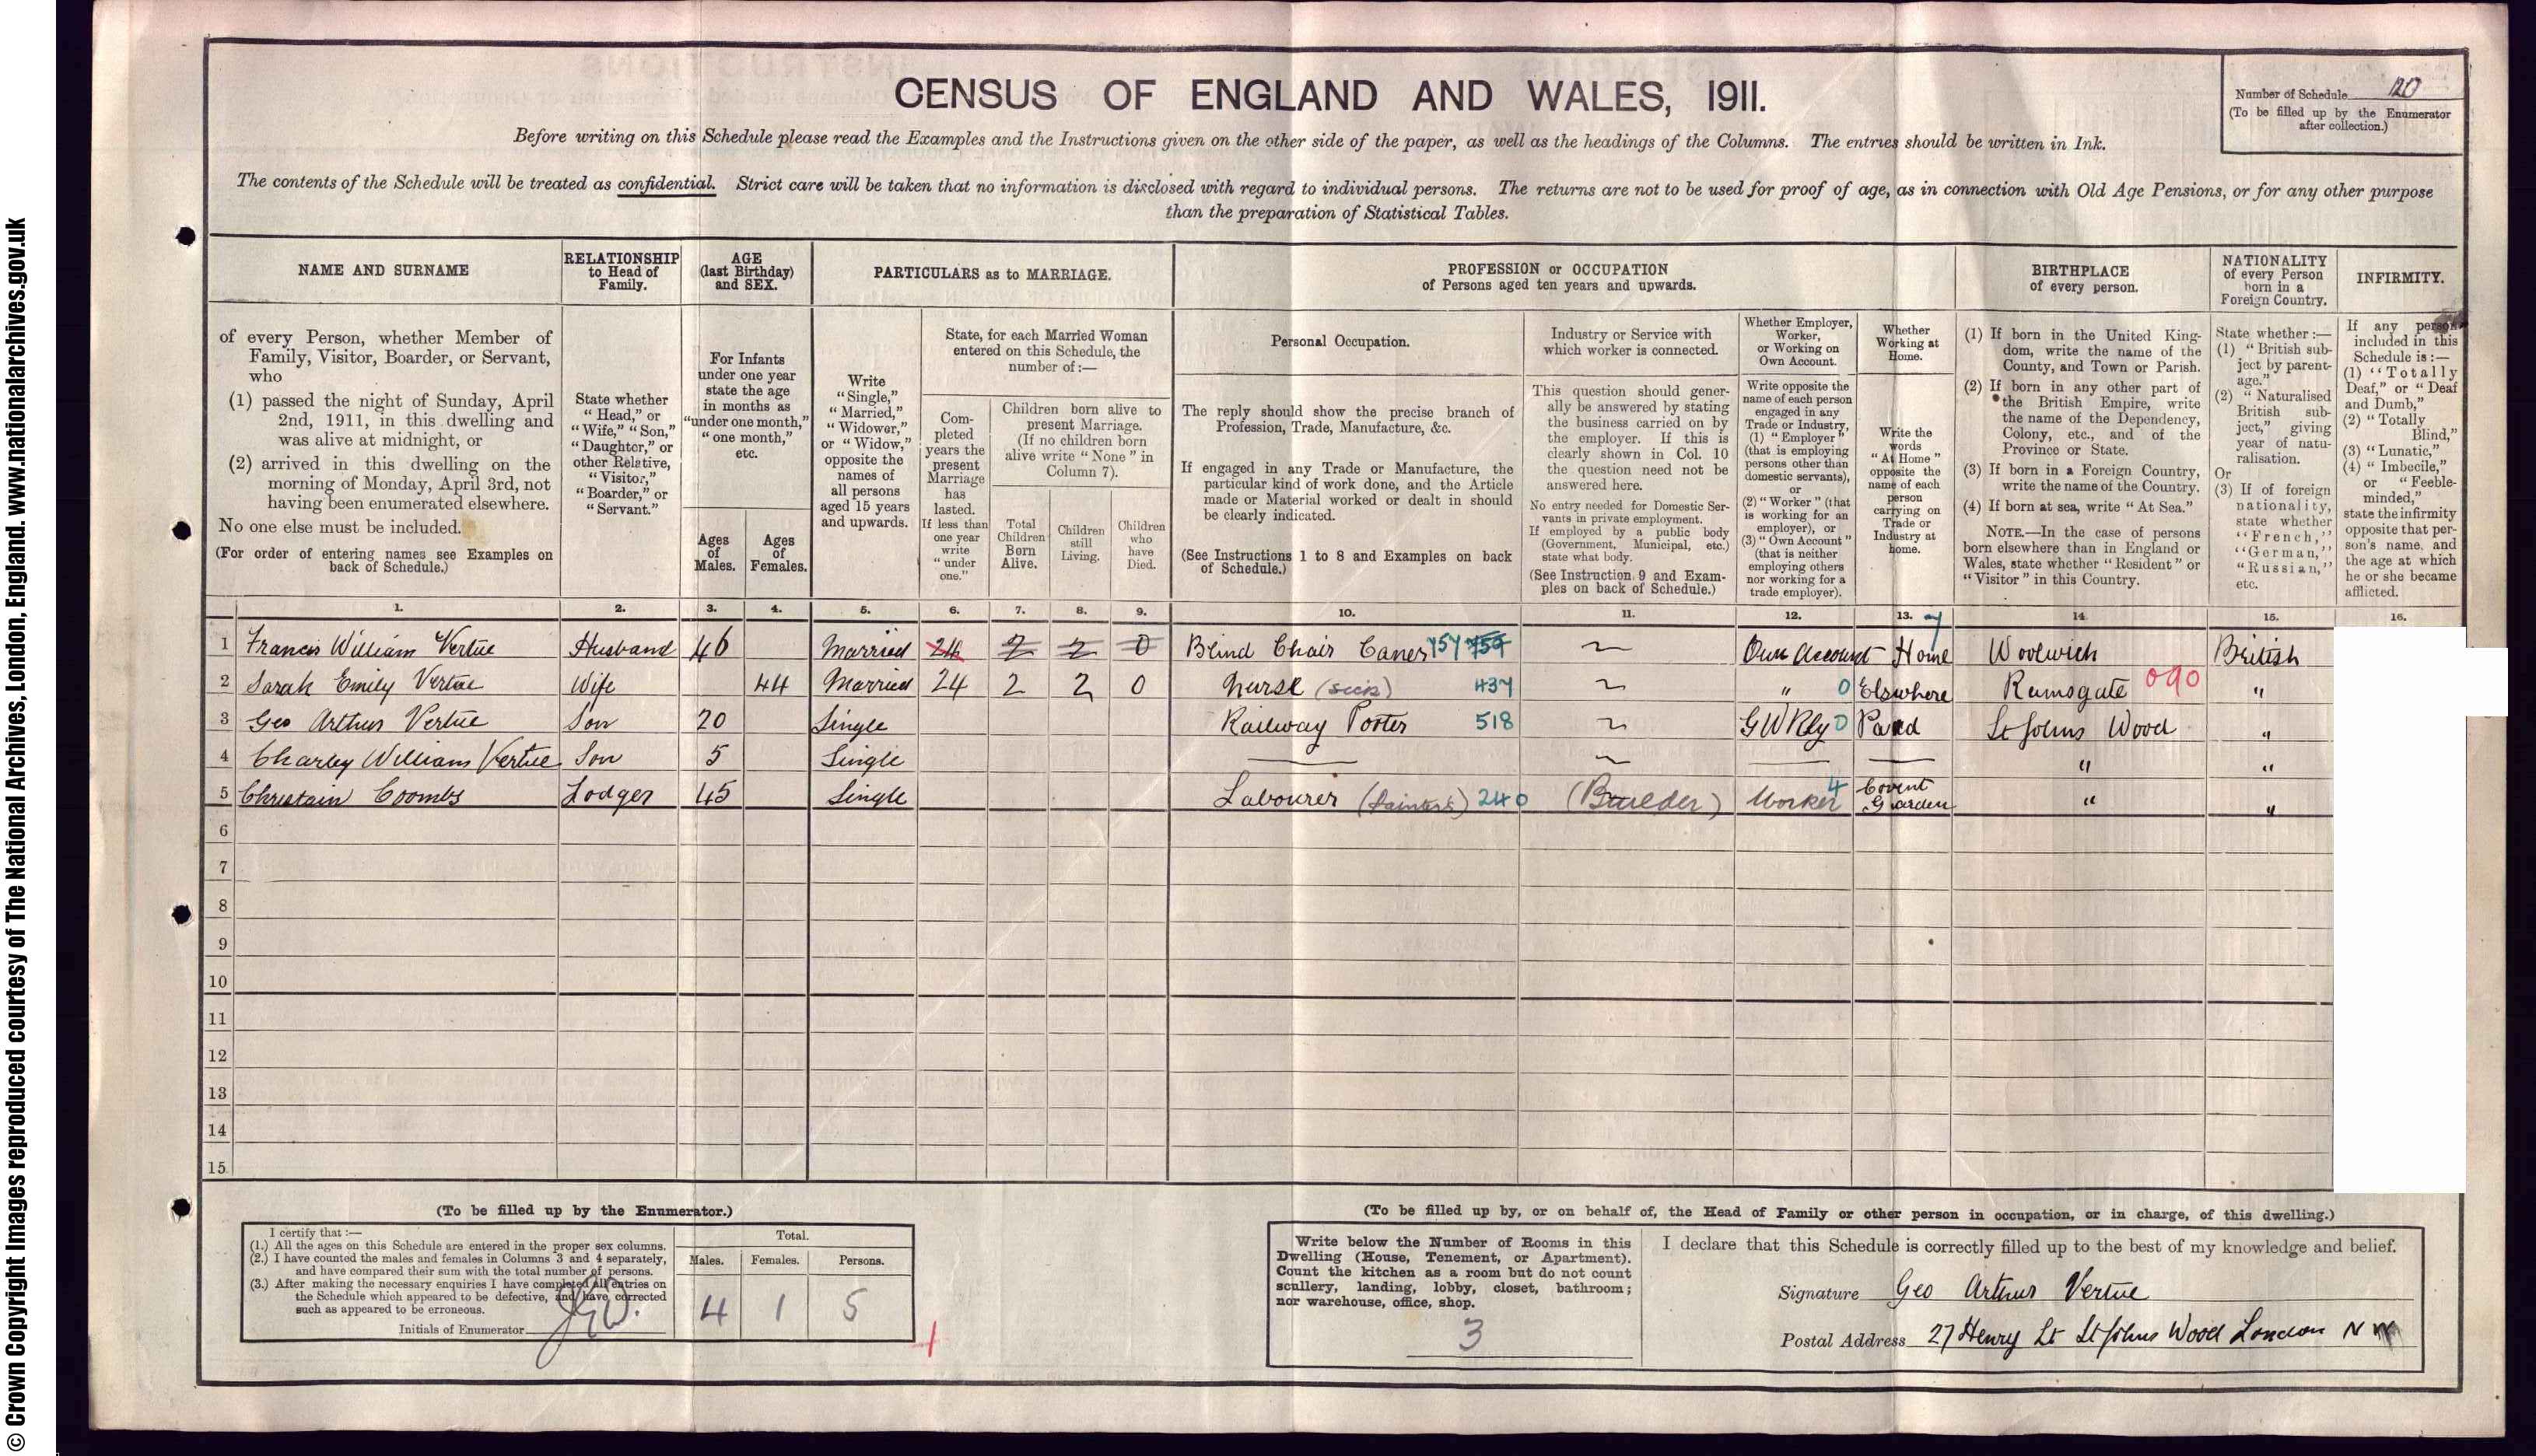 © Crown Copyright Images reproduced courtesy of The National Archives, London, England. www.nationalarchives.gov.uk
CENSUS OF ENGLAND AND WALES, 1911.
Number of Schedule 120
(To be filled up by the Enumerator after collection.)
Before writing on this Schedule please read the Examples and the Instructions given on the other side of the paper, as well as the headings of the Columns. The entries should be written in Ink.
The contents of the Schedule will be treated as confidential. Strict care will be taken that no information is disclosed with regard to individual persons. The returns are not to be used for proof of age, as in connection with Old Age Pensions, or for any other purpose
than the preparation of Statistical Tables.
NAME AND SURNAME
of every Person, whether Member of
Family, Visitor, Boarder, or Servant,
who
(1) passed the night of Sunday, April
2nd, 1911, in this dwelling and
was alive at midnight, or
(2) arrived in this dwelling on the
morning of Monday, April 3rd, not
having been enumerated elsewhere.
No one else must be included.
(For order of entering names see Examples on
back of Schedule.)
RELATIONSHIP
to Head of
Family.
State whether
"Head," or
"Wife," "Son,"
"Daughter," or
other Relative,
"Visitor,"
"Boarder," or
"Servant."
AGE
(last Birthday)
and SEX.
For Infants
under one year
state the age
in months as
"under one month,"
"one month,"
etc.
Ages
of
Males.
Ages
of
Females.
PARTICULARS as to MARRIAGE.
Write
"Single,"
"Married,"
"Widower,"
or "Widow,"
opposite the
names of
all persons
aged 15 years
and upwards.
State, for each Married Woman
entered on this Schedule, the
number of:—
Com-
pleted
years the
present
Marriage
has
lasted.
If less than
one year
write
"under
one."
Children born alive to
present Marriage.
(If no children born
alive write "None" in
Column 7).
Total
Children
Born
Alive.
Children
still
Living.
Children
who
have
Died.
PROFESSION or OCCUPATION
of Persons aged ten years and upwards.
Personal Occupation.
The reply should show the precise branch of
Profession, Trade, Manufacture, &c.
If engaged in any Trade or Manufacture, the
particular kind of work done, and the Article
made or Material worked or dealt in should
be clearly indicated.
(See Instructions 1 to 8 and Examples on back
of Schedule.)
Industry or Service with
which worker is connected.
This question should gener-
ally be answered by stating
the business carried on by
the employer. If this is
clearly shown in Col. 10
the question need not be
answered here.
No entry needed for Domestic Ser-
vants in private employment.
If employed by a public body
(Government, Municipal, etc.)
state what body.
(See Instruction 9 and Exam-
ples on back of Schedule.)
Whether Employer,
Worker,
or Working on
Own Account.
Write opposite the
name of each person
engaged in any
Trade or Industry,
(1) "Employer"
(that is employing
persons other than
domestic servants),
or
(2) "Worker" (that
is working for an
employer), or
(3) "Own Account"
(that is neither
employing others
nor working for a
trade employer).
Whether
Working at
Home.
Write the
words
"At Home"
opposite the
name of each
person
carrying on
Trade or
Industry at
home.
BIRTHPLACE
of every person.
(1) If born in the United King-
dom, write the name of the
County, and Town or Parish.
(2) If born in any other part of
the British Empire, write
the name of the Dependency,
Colony, etc., and of the
Province or State.
(3) If born in a Foreign Country,
write the name of the Country.
(4) If born at sea, write "At Sea."
NOTE.—In the case of persons
born elsewhere than in England or
Wales, state whether "Resident" or
"Visitor" in this Country.
NATIONALITY
of every Person
born in a
Foreign Country.
State whether:—
(1) "British sub-
ject by parent-
age."
(2) "Naturalised
British sub-
ject," giving
year of natu-
ralisation.
Or
(3) If of foreign
nationality,
state whether
"French,"
"German,"
"Russian,"
etc.
INFIRMITY.
If any person
included in this
Schedule is:—
(1) "Totally
Deaf," or "Deaf
and Dumb,"
(2) "Totally
Blind,"
(3) "Lunatic,"
(4) "Imbecile,"
or "Feeble-
minded,"
state the infirmity
opposite that per-
son's name, and
the age at which
he or she became
afflicted.
1. 2. 3. 4. 5. 6. 7. 8. 9. 10. 11. 12. 13. 14. 15. 16.
1 Francis William Vertue Husband 46 Married 24 2 2 0 Blind Chair Caner 757 Own Account Home Woolwich British
2 Sarah Emily Vertue Wife 44 Married 24 2 2 0 Nurse (sick) 437 " 0 Elswhere Ramsgate 090 "
3 Geo Arthur Vertue Son 20 Single Railway Porter 518 GWRly 0 Padd St Johns Wood "
4 Charley William Vertue Son 5 Single " "
5 Christain Coombs Lodger 45 Single Labourer (Painter's) 240 (Builder) Worker 4 Covent Garden " "
6
7
8
9
10
11
12
13
14
15
(To be filled up by the Enumerator.)
I certify that:—
(1.) All the ages on this Schedule are entered in the proper sex columns.
(2.) I have counted the males and females in Columns 3 and 4 separately,
and have compared their sum with the total number of persons.
(3.) After making the necessary enquiries I have completed all entries on
the Schedule which appeared to be defective, and have corrected
such as appeared to be erroneous.
Initials of Enumerator
Total.
Males. Females. Persons.
4 1 5
(To be filled up by, or on behalf of, the Head of Family or other person in occupation, or in charge, of this dwelling.)
Write below the Number of Rooms in this
Dwelling (House, Tenement, or Apartment).
Count the kitchen as a room but do not count
scullery, landing, lobby, closet, bathroom;
nor warehouse, office, shop.
3
I declare that this Schedule is correctly filled up to the best of my knowledge and belief.
Signature Geo Arthur Vertue
Postal Address 27 Henry St St Johns Wood London N W